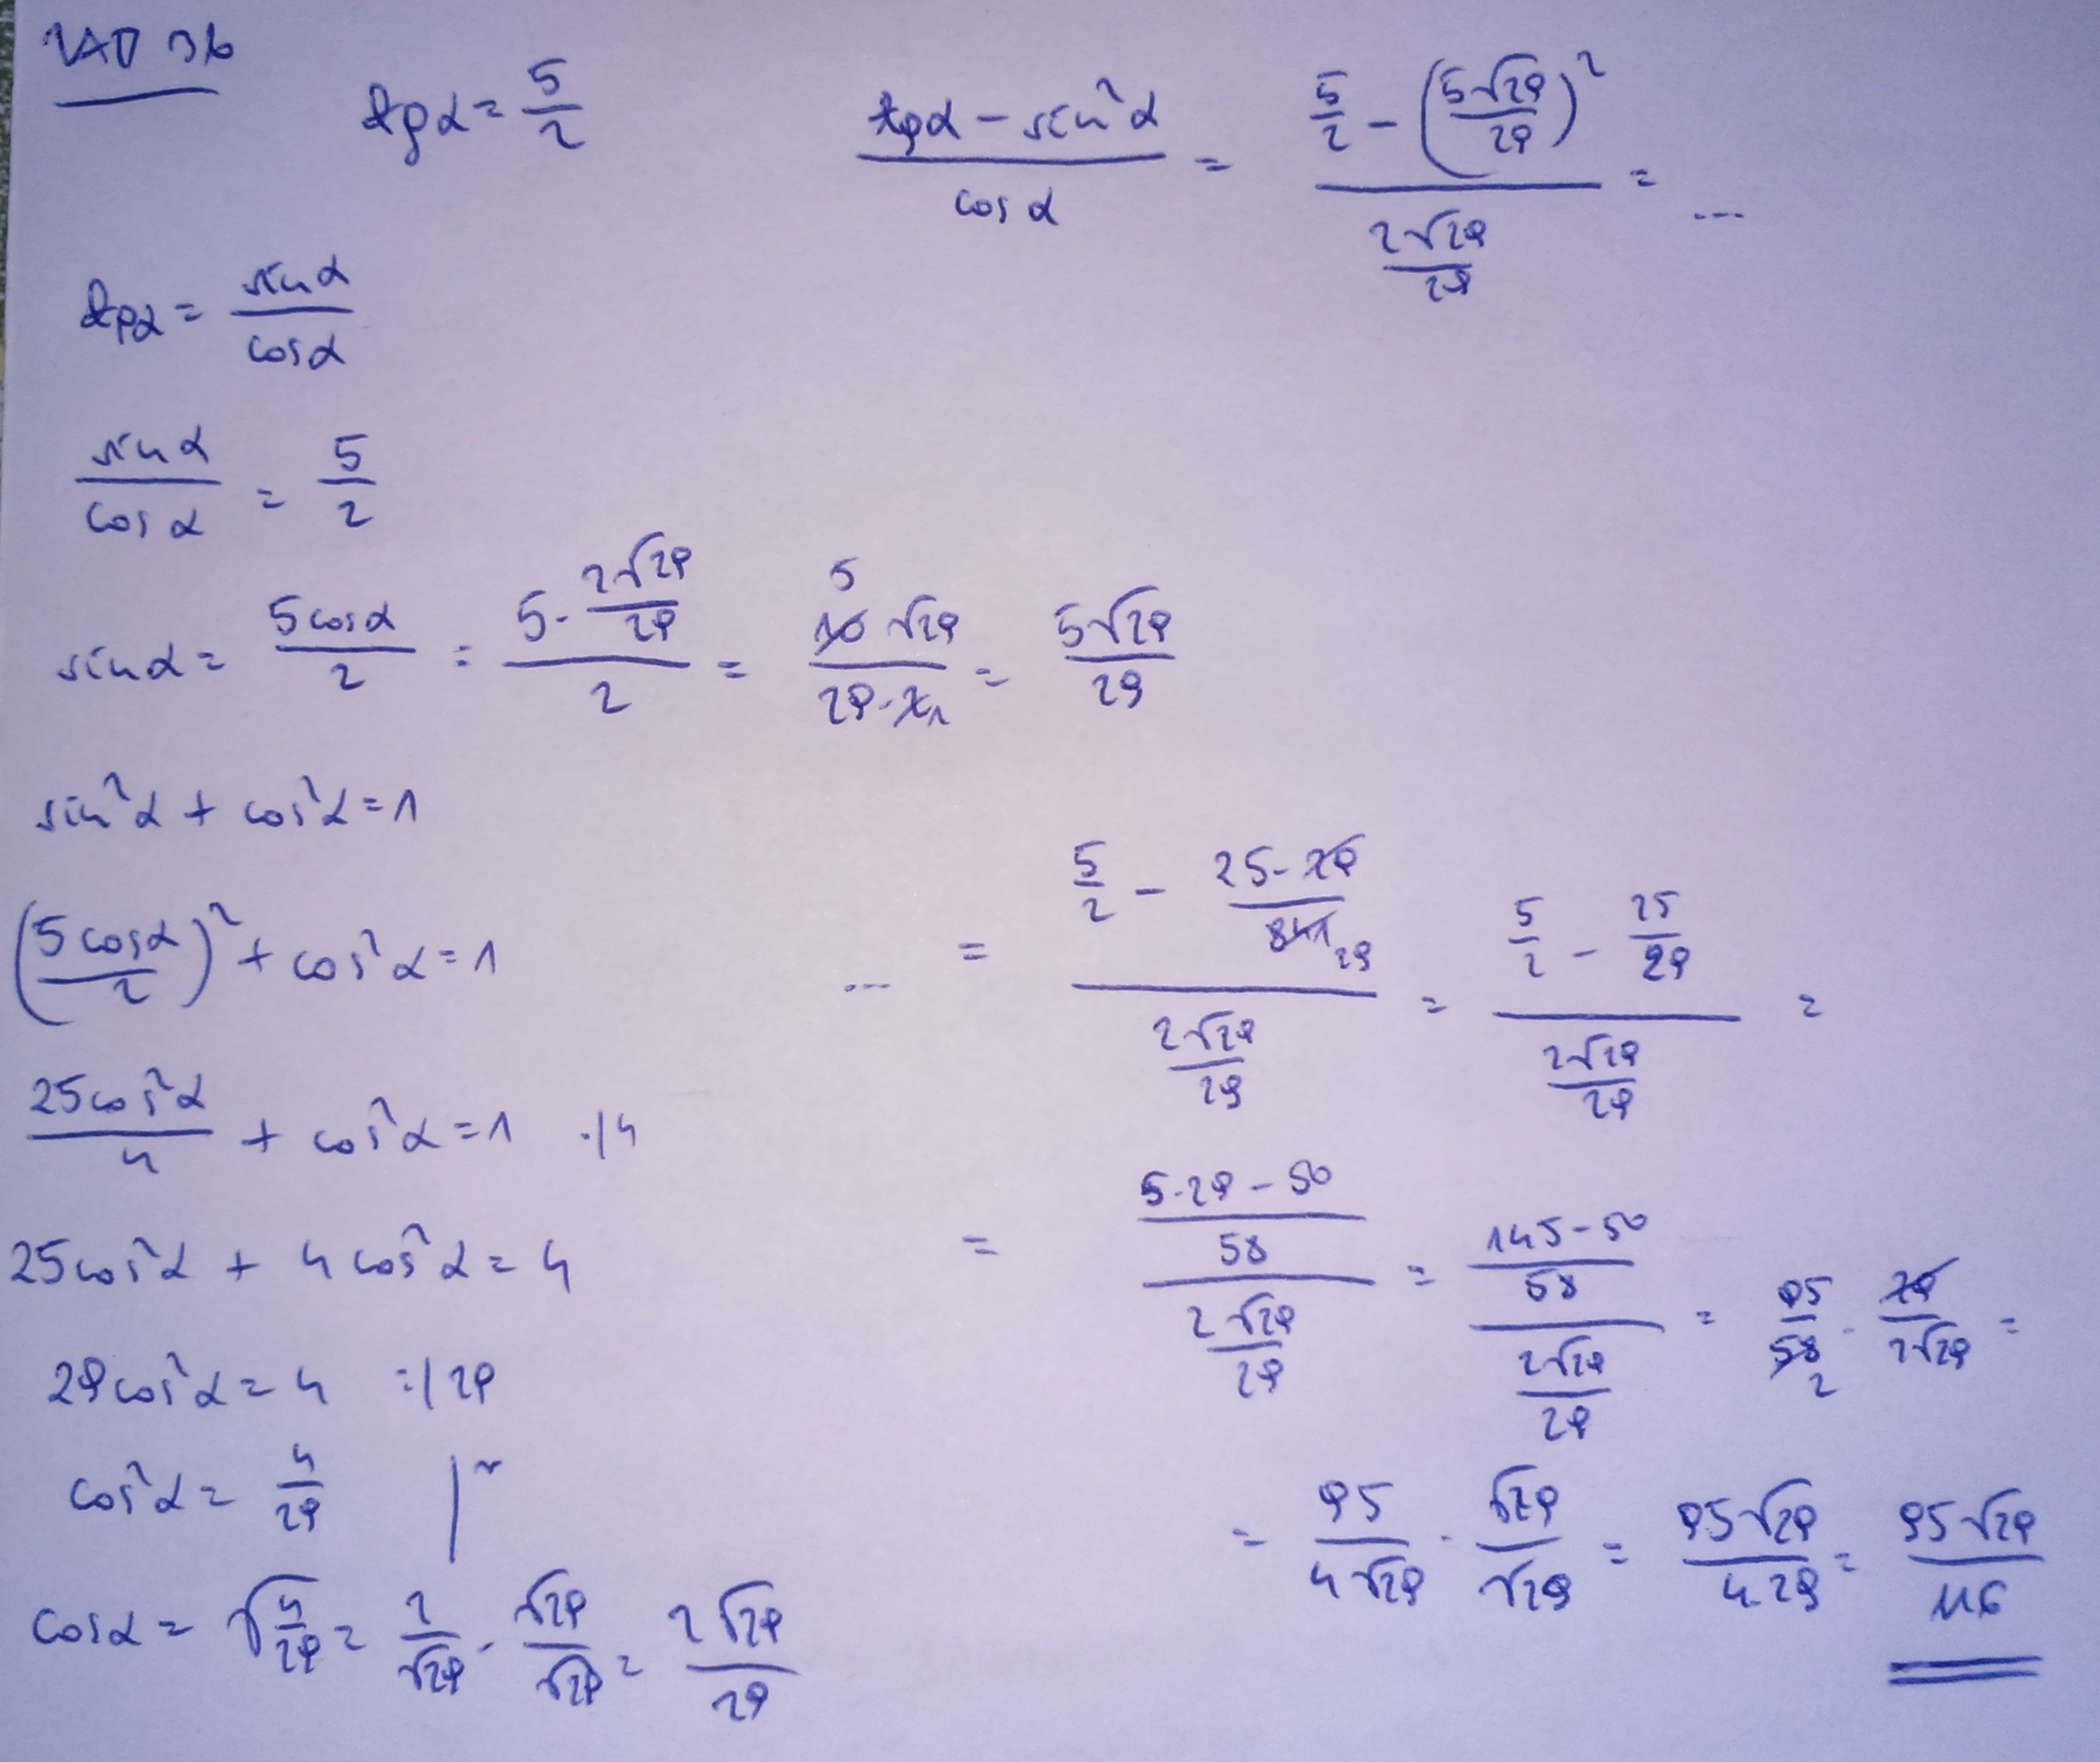 ZAD 36
tgα = 5/2
(tgα - sin²α)/cosα = (5/2 - (5√29/29)²)/(2√29/29) = ...
tgα = sinα/cosα
sinα/cosα = 5/2
sinα = 5cosα/2 = (5·2√29/29)/2 = 10√29/(29·2) 5 1 = 5√29/29
sin²α + cos²α = 1
(5cosα/2)² + cos²α = 1
25cos²α/4 + cos²α = 1 ·/4
25cos²α + 4cos²α = 4
29cos²α = 4 :/29
cos²α = 4/29 /√
cosα = √(4/29) = 2/√29 · √29/√29 = 2√29/29
... = (5/2 - 25·29/841 29)/(2√29/29) = (5/2 - 25/29)/(2√29/29) =
= ((5·29 - 50)/58)/(2√29/29) = ((145 - 50)/58)/(2√29/29) = 95/58 2 · 29/2√29 =
= 95/4√29 · √29/√29 = 95√29/4·29 = 95√29/116